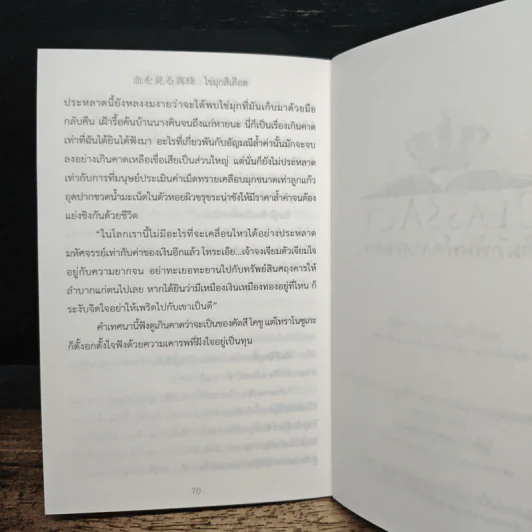 血を見る真珠 : ไข่มุกสีเลือด
ประหลาดนี้ยังหลงงมงายว่าจะได้พบไข่มุกที่มันเก็บมาด้วยมือ
กลับคืน เฝ้ารื้อค้นบ้านนางคินจนถึงแก่หายนะ นี่ก็เป็นเรื่องเกินคาด
เท่าที่ฉันได้ยินได้ฟังมา อะไรที่เกี่ยวพันกับอัญมณีล้ำค่านั้นมักจะจบ
ลงอย่างเกินคาดเหลือเชื่อเสียเป็นส่วนใหญ่ แต่นั่นก็ยังไม่ประหลาด
เท่ากับการที่มนุษย์ประเมินค่าเม็ดทรายเคลือบมุกขนาดเท่าลูกแก้ว
อุดปากขวดน้ำมะเน็ดในตัวหอยผิวขรุขระน่าชังให้มีราคาล้ำค่าจนต้อง
แย่งชิงกันด้วยชีวิต
“ในโลกเรานี้ไม่มีอะไรที่จะเคลื่อนไหวได้อย่างประหลาด
มหัศจรรย์เท่ากับค่าของเงินอีกแล้ว โทระเอ๊ย...เจ้าจงเจียมตัวเจียมใจ
อยู่กับความยากจน อย่าทะเยอทะยานไปกับทรัพย์สินศฤงคารให้
ลำบากแก่ตนไปเลย หากได้ยินว่ามีเหมืองเงินเหมืองทองอยู่ที่ไหน ก็
ระงับจิตใจอย่าให้เพริดไปกับเขาเป็นดี”
คำเทศนานี้ฟังดูเกินคาดว่าจะเป็นของคัตสึ ไคชู แต่โทราโนซูเกะ
ก็ตั้งอกตั้งใจฟังด้วยความเคารพที่ฝังใจอยู่เป็นทุน
70